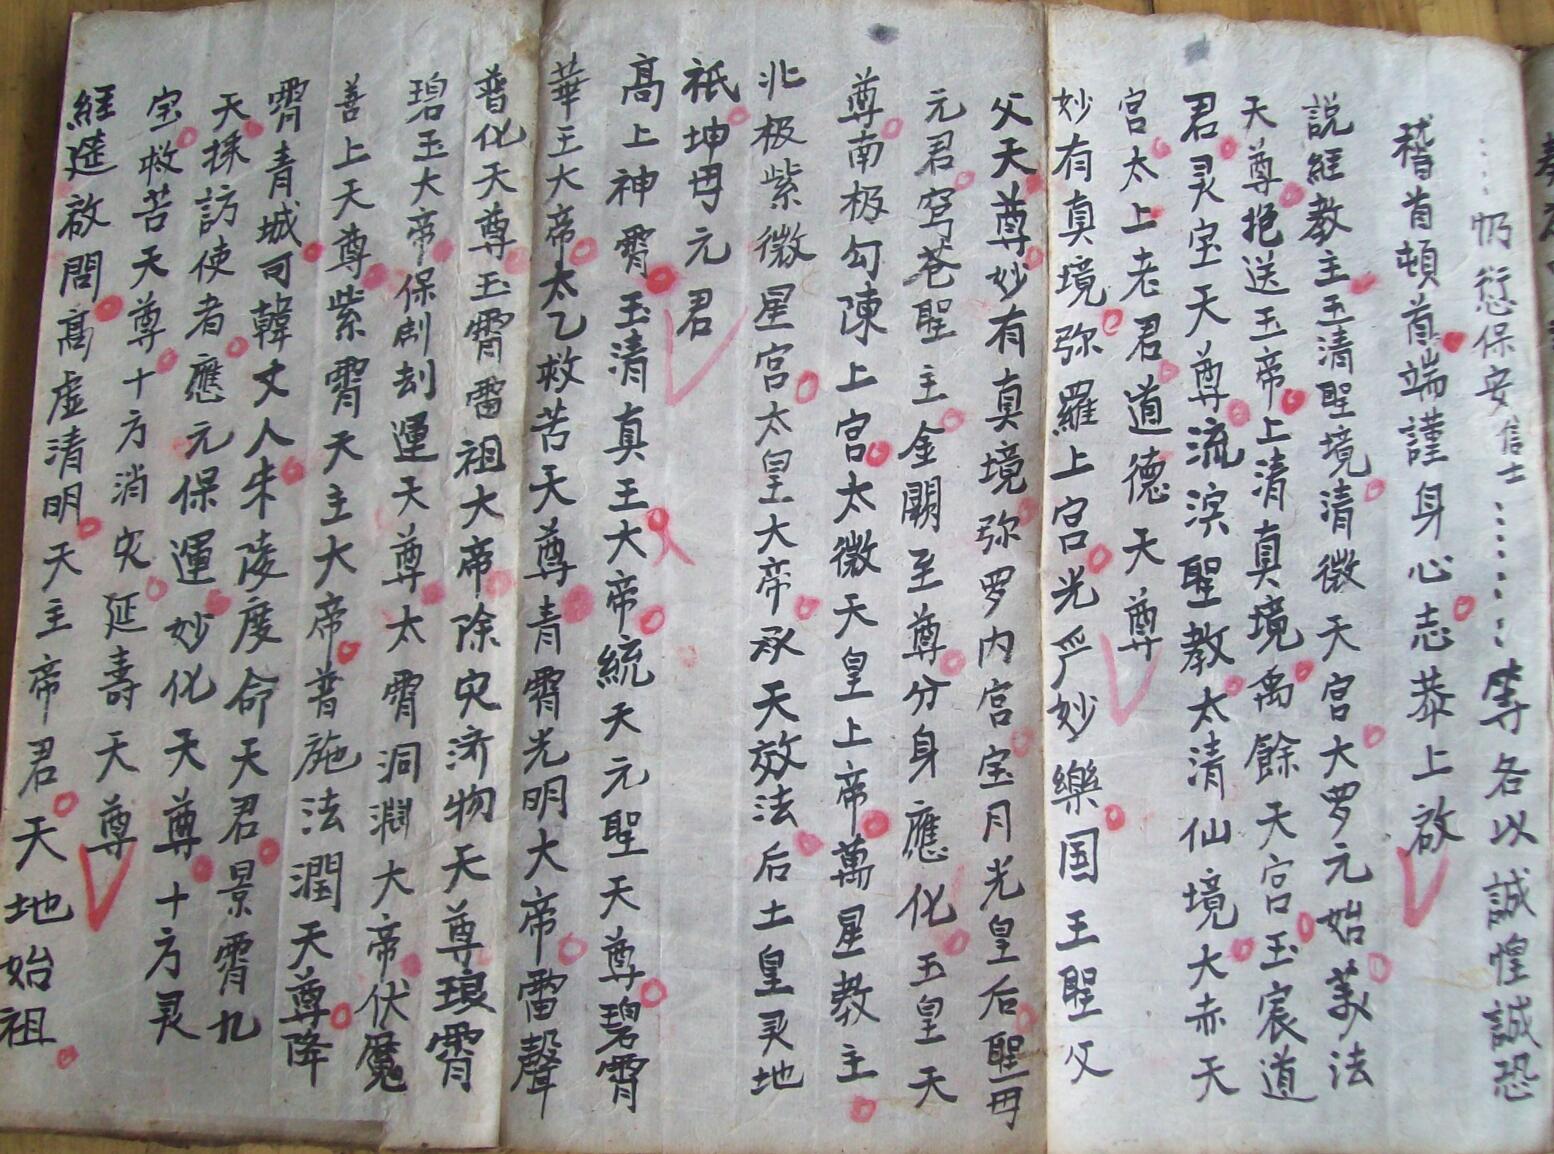 ⋯⋯仍衍愆保安信士⋯⋯⋯⋯等各以誠惶誠恐
稽首頓首端謹身心志恭上啟
説經教主玉清聖境清微天宮大罗元始𦍑法
天尊抱送玉帝上清真境禹餘天宮玉宸道
君灵宝天尊流演聖教太清仙境大赤天
宮太上老君道德天尊
妙有真境弥羅上宮光严妙樂国王聖父
父天尊妙有真境弥罗内宮宝月光皇后聖母
元君穹苍聖主金闕至尊分身應化玉皇天
尊南极勾陳上宮太微天皇上帝萬星教主
北极紫微星宮太皇大帝承天效法后土皇灵地
祇坤母元君
高上神霄玉清真王大帝統天元聖天尊碧霄
華王大帝太乙救苦天尊青霄光明大帝雷聲
普化天尊玉霄雷祖大帝除灾济物天尊琅霄
碧玉大帝保制刦運天尊太霄洞渊大帝伏魔
善上天尊紫霄天主大帝普施法潤天尊降
霄青城司韓丈人朱陵度命天君景霄九
天採訪使者應元保運妙化天尊十方灵
宝救苦天尊十方消灾延壽天尊
經筵啟問高虚清明天主帝君天地始祖